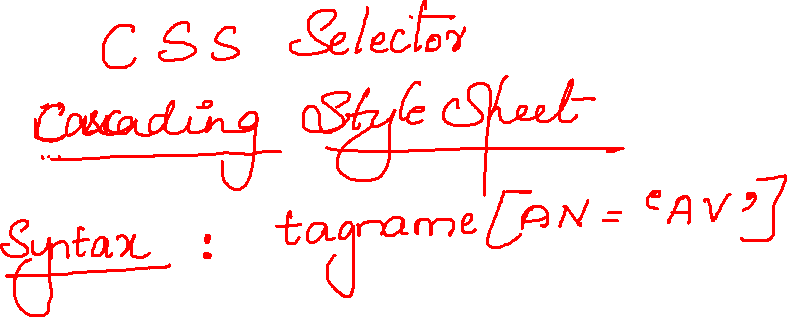 CSS Selector
Cascading Style Sheet
Syntax : tagname[AN = 'AV']